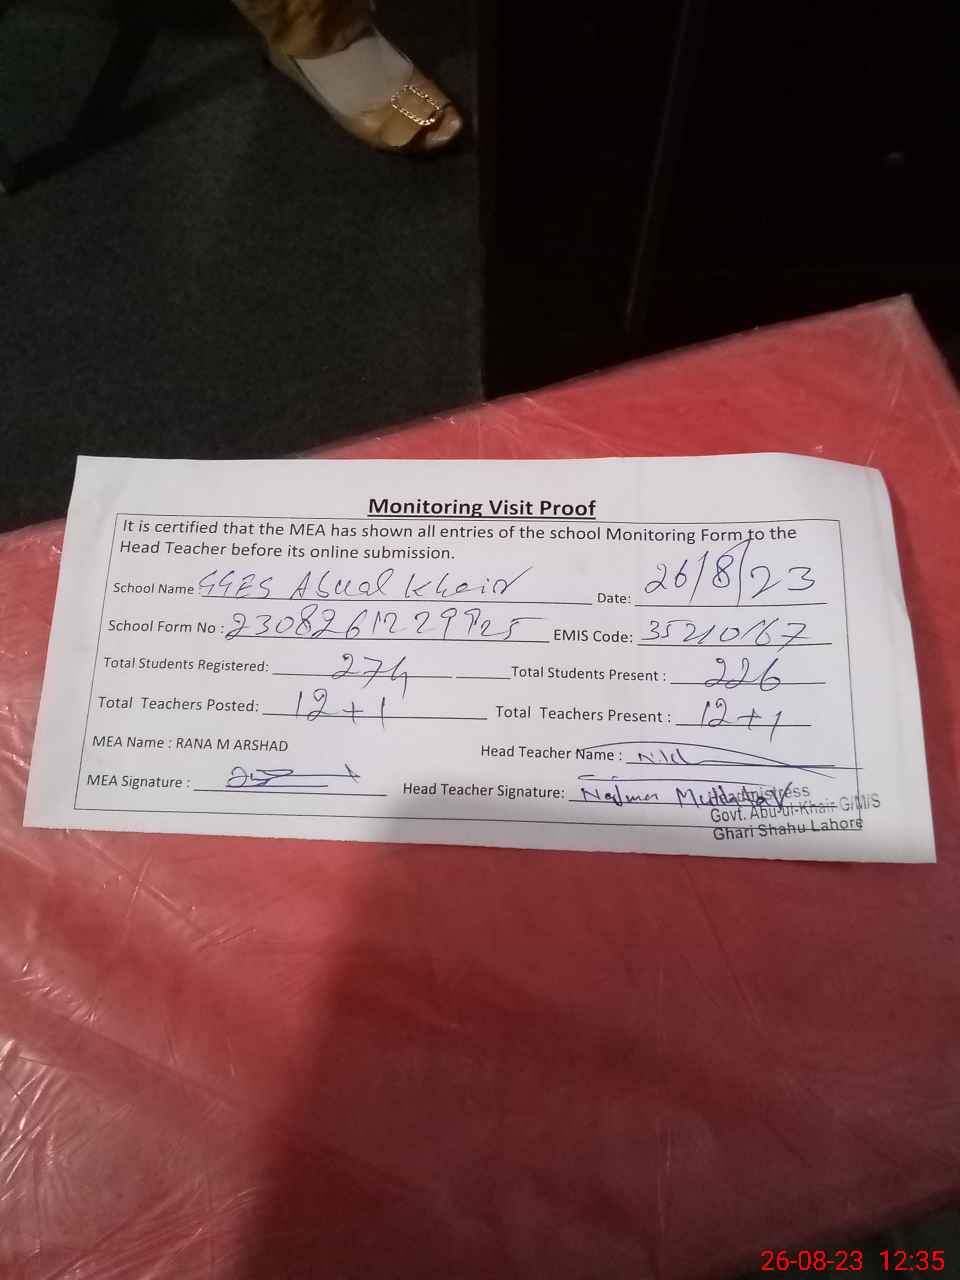 Monitoring Visit Proof
It is certified that the MEA has shown all entries of the school Monitoring Form to the
Head Teacher before its online submission.
School Name GGES Abual Khair Date: 26/8/23
School Form No : EMIS Code: 35210167
Total Students Registered: 274 Total Students Present : 226
Total Teachers Posted: 12+1 Total Teachers Present : 12+1
MEA Name : RANA M ARSHAD Head Teacher Name :
MEA Signature : Head Teacher Signature: Najma
Headmistress
Govt. Abu-ul-Khair G/M/S
Ghari Shahu Lahore
26-08-23 12:35